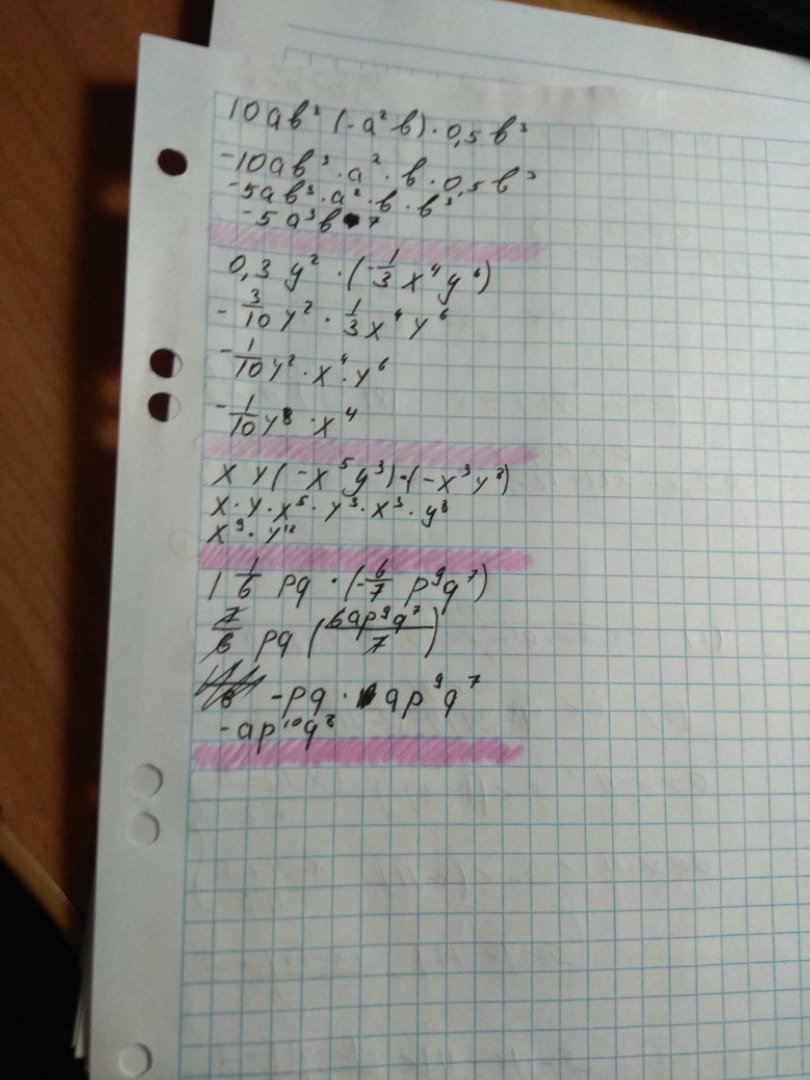 10ab³(-a²b)·0,5b³
-10ab³·a²·b·0,5b³
-5ab³·a²·b·b³
-5a³b⁷
0,3y²·(-1/3x⁴y⁶)
-3/10y²·1/3x⁴y⁶
-1/10y²·x⁴·y⁶
-1/10y⁸·x⁴
xy(-x⁵y³)·(-x³y⁸)
x·y·x⁵·y³·x³·y⁸
x⁹·y¹²
1 1/6 pq·(-6/7 p⁹q⁷)
7/6 pq(6ap⁹q⁷/7)
-pq·ap⁹q⁷
-ap¹⁰q⁸